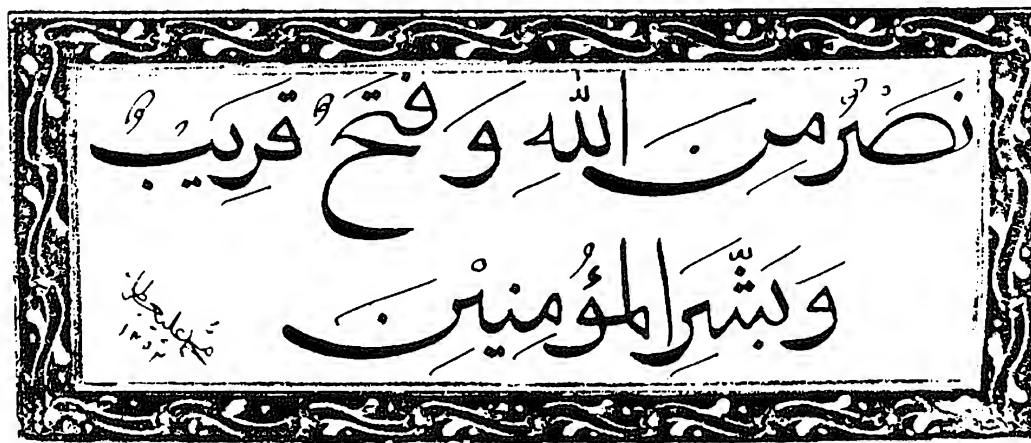 نَصْرٌ مِنَ اللّٰهِ وَفَتْحٌ قَرِيبٌ
وَبَشِّرِ الْمُؤْمِنِيْنَ